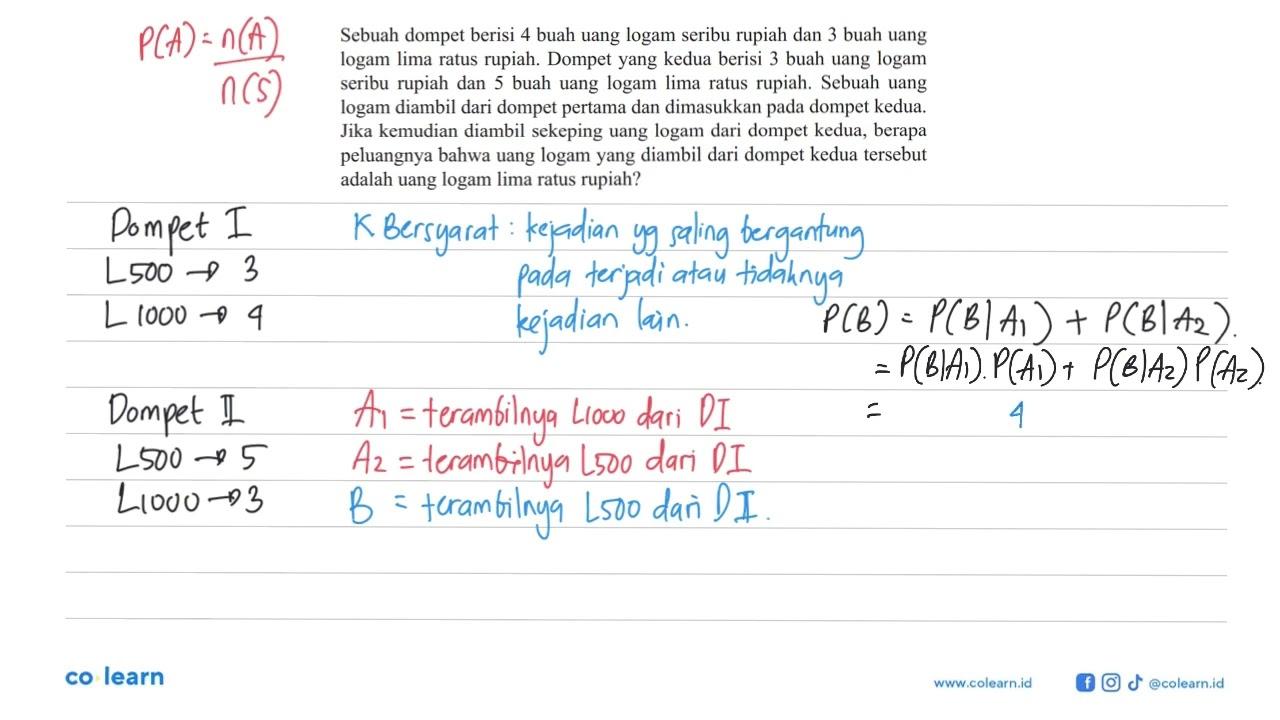 P(A) = n(A)
n(S)
Sebuah dompet berisi 4 buah uang logam seribu rupiah dan 3 buah uang
logam lima ratus rupiah. Dompet yang kedua berisi 3 buah uang logam
seribu rupiah dan 5 buah uang logam lima ratus rupiah. Sebuah uang
logam diambil dari dompet pertama dan dimasukkan pada dompet kedua.
Jika kemudian diambil sekeping uang logam dari dompet kedua, berapa
peluangnya bahwa uang logam yang diambil dari dompet kedua tersebut
adalah uang logam lima ratus rupiah?
Dompet I
L500 → 3
L1000 → 4
K Bersyarat : kejadian yg saling bergantung
pada terjadi atau tidaknya
kejadian lain.
P(B) = P(B|A1) + P(B|A2).
= P(B|A1).P(A1) + P(B|A2) P(A2).
= 4
Dompet II
L500 → 5
L1000 → 3
A1 = terambilnya L1000 dari DI
A2 = terambilnya L500 dari DI
B = terambilnya L500 dari DI.
co learn
www.colearn.id
@colearn.id